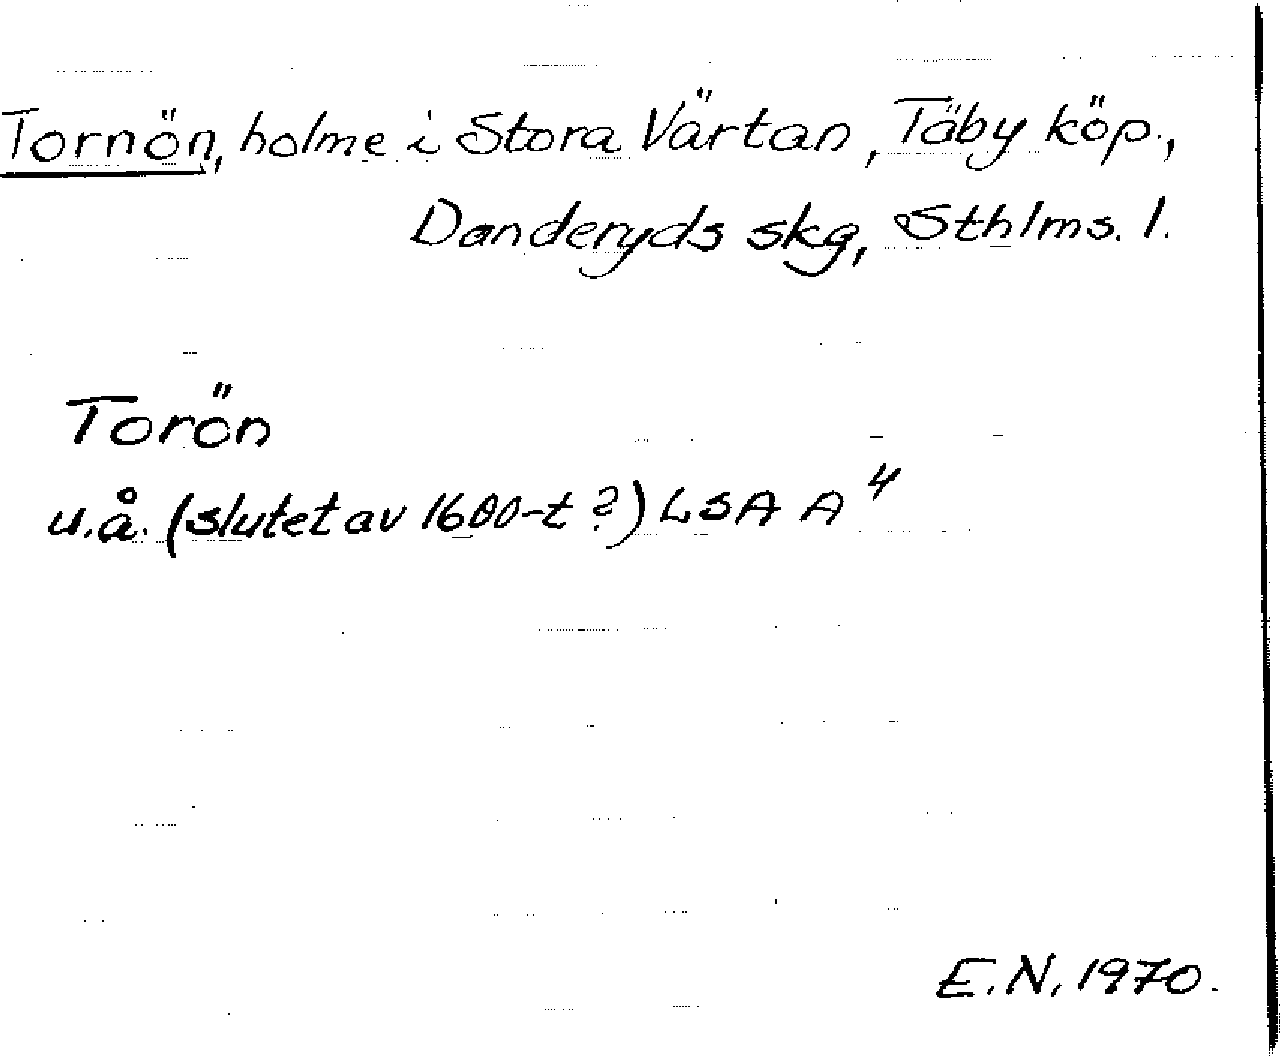 Tornön, holme i Stora Värtan, Täby köp.,
Danderyds skg, Sthlms. l.
Torön
u.å. (slutet av 1600-t ?) LSA A⁴
E.N. 1970.